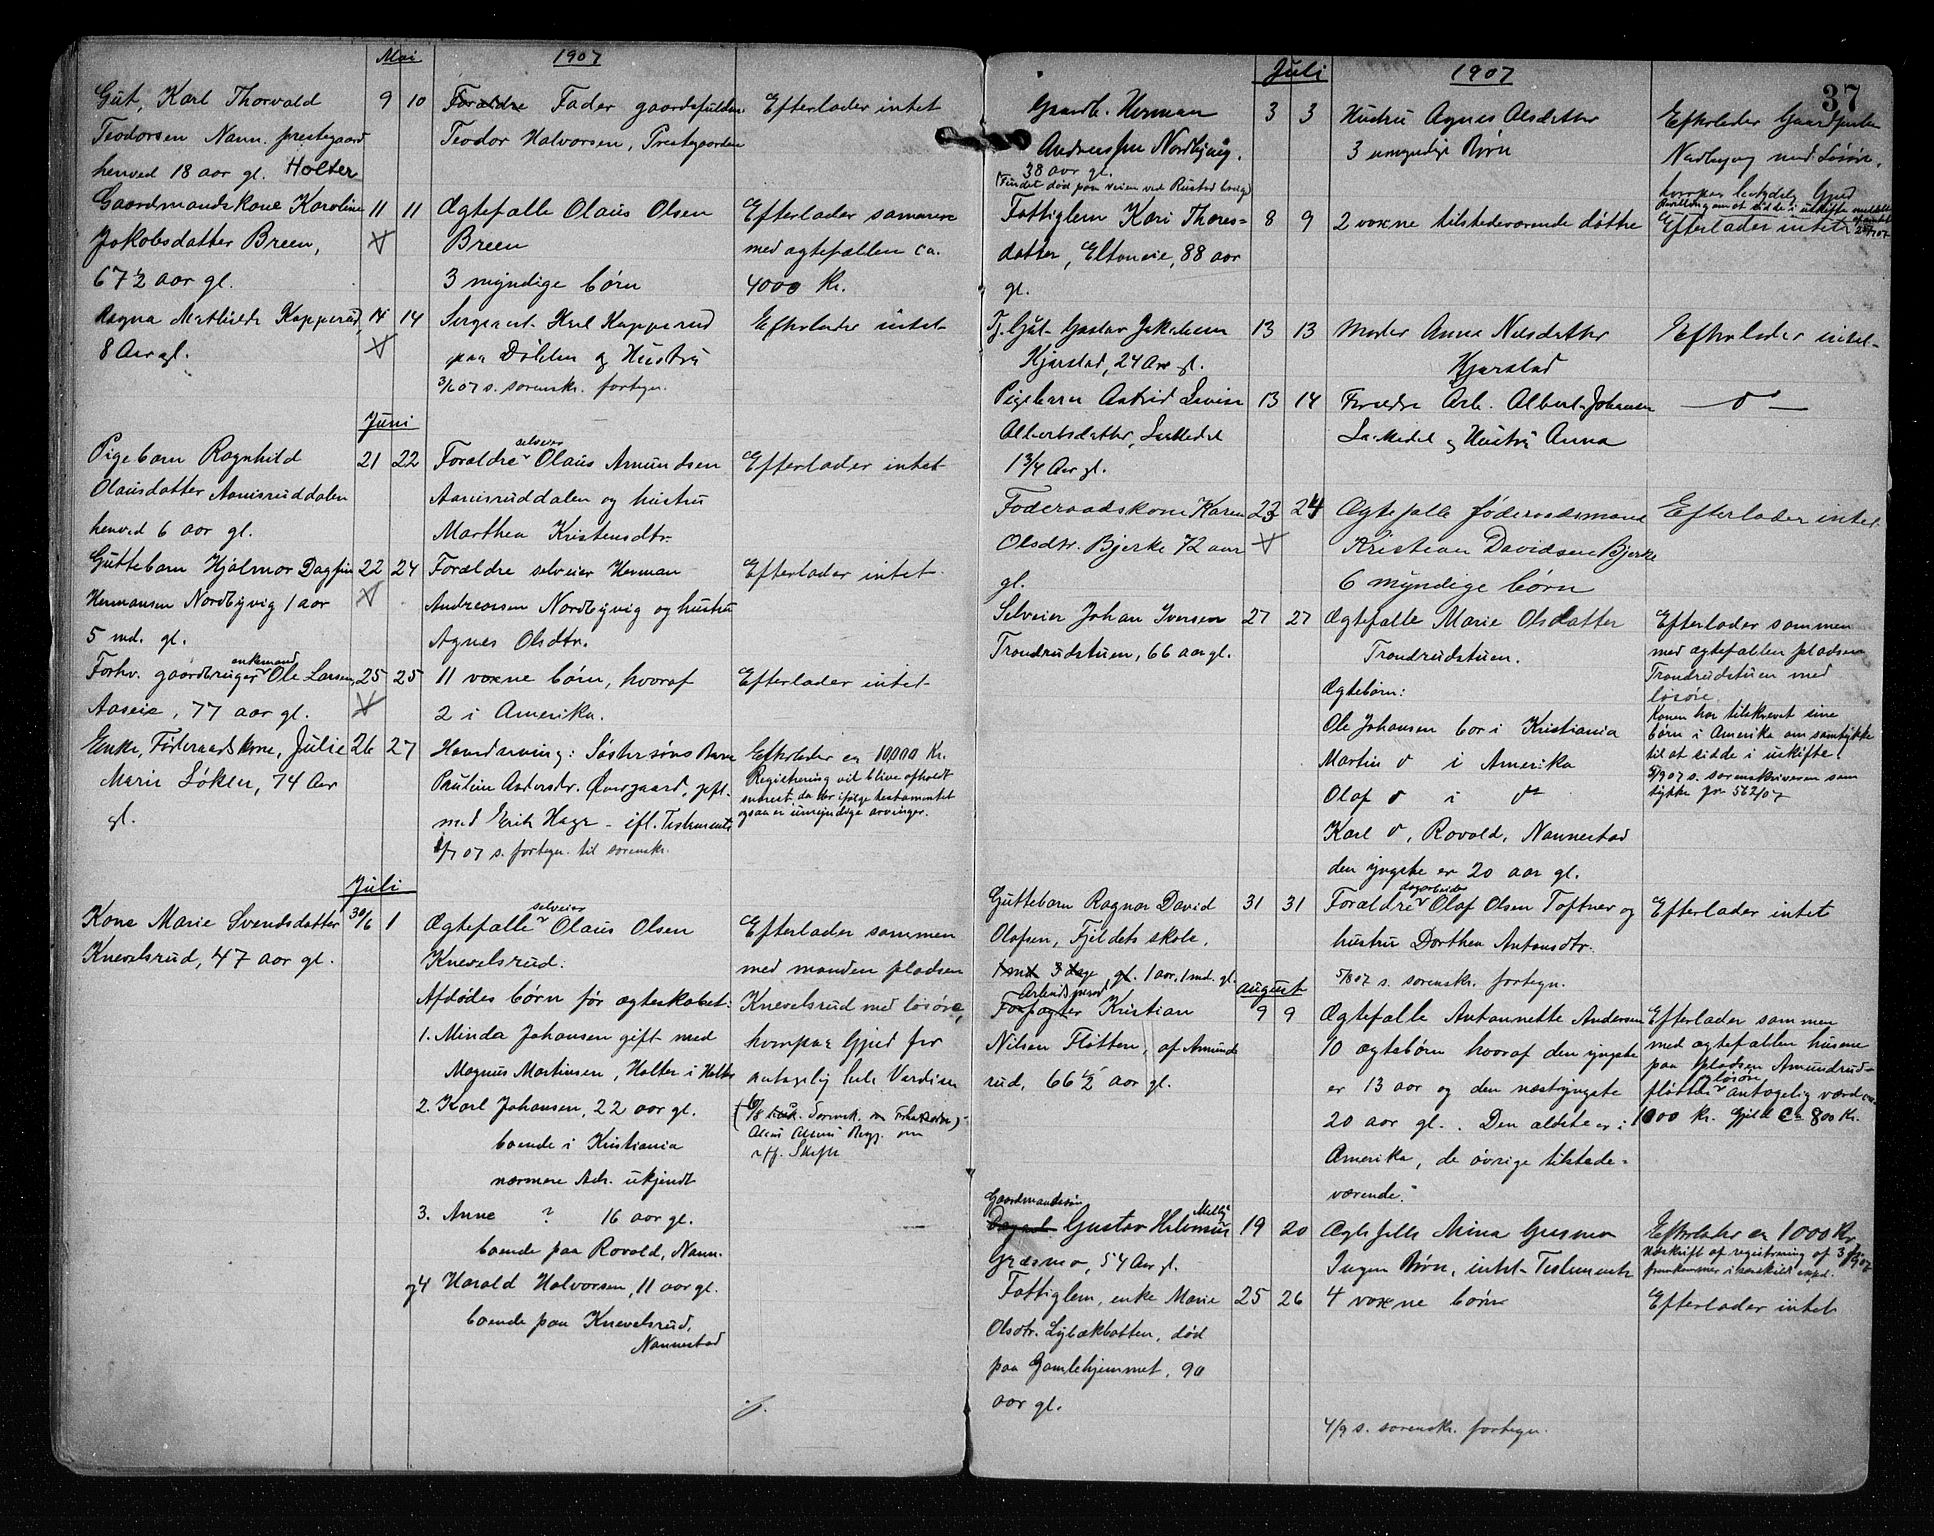 Mai
1907
Gut, Karl Thorvald
Teodorsen Nann. prestegaard
henved 18 aar gl. Holter
9 10
Forældre Fader gaardsfuldm
Teodor Halvorsen, Prestegaarden
Efterlader intet
Gaardmandskone Karoline
Jakobsdatter Breen,
67 1/2 aar gl.
11 11
Ægtefælle Olaus Olsen
Breen
3 myndige børn
Efterlader sammen
med ægtefællen ca.
4000 Kr.
Ragna Mathilde Kopperud
8 Aar gl.
14 14
Sergeant Karl Kopperud
paa Døhlen og Hustru
3/6 07 s. sorenskr. fortegn.
Efterlader intet
Juni
Pigebarn Ragnhild
Olausdatter Aamisruddalen
henved 6 aar gl.
21 22
selveier
Forældre Olaus Amundsen
Aamisruddalen og hustru
Marthea Kristensdtr.
Efterlader intet
Guttebarn Hjalmar Dagfin
Hermansen Nordbyvig 1 aar
5 md. gl.
22 24
Forældre selveier Herman
Andreassen Nordbyvig og hustru
Agnes Olsdtr.
Efterlader intet
enkemand
Forhv. gaardbruger Ole Larsen
Aaseie, 77 aar gl.
25 25
11 voxne børn, hvoraf
2 i Amerika.
Efterlader intet
Enke, Føderaadskone, Julie
Marie Løken, 74 Aar
gl.
26 27
Hovedarving: Søstersøns Barn
Pauline Andersdr. Øvergaard, gift
med Erik Haga - ifl. Testamente
1/7 07 s. fortegn. til sorenskr.
Efterlader ca 10,000 Kr.
Registrering vil blive afholdt
snarest, da der ifølge testamentet
ogsaa er umyndige arvinger.
Juli
Kone Marie Svendsdatter
Knevelsrud, 47 aar gl.
30/6 1
selveier
Ægtefælle Olaus Olsen
Knevelsrud.
Afdødes børn før ægteskabet:
1. Minda Johansen gift med
Magnus Martinsen, Holter i Holter
2. Karl Johansen, 22 aar gl.
boende i Kristiania
nærmere Adr. ukjendt
3. Anne ? 16 aar gl.
boende paa Rovold, Nann.
og 4 Harald Halvorsen, 11 aar gl.
boende paa Knevelsrud,
Nannestad
Efterlader sammen
med manden pladsen
Knevelsrud med løsøre,
hvorpaa Gjæld for
antagelig hele Værdien
om
off. Skifte
37
Juli
1907
Gaardb. Herman
Andreassen Nordbyvig.
38 aar gl.
(Fundet død paa veien ved Rustad bro)
3 3
Hustru Agnes Olsdatter
3 umyndige Børn
Efterlader Gaardparten
Nordbyvig med Løsøre,
hvorpaa betydelig Gjæld
Bevilling om at sidde i uskifte meddelt
Fattiglem Kari Thores-
datter, Eltoneie, 88 aar
gl.
8 9
2 voxne tilstedeværende døttre
Efterlader intet
Tj. Gut Gustav Jakobsen
Kjærstad, 24 Aar gl.
13 13
Moder Anna Nilsdatter
Kjærstad
Efterlader intet
Pigebarn Astrid Lovise
Albertsdatter, Lamedel
1 3/4 Aar gl.
13 14
Forældre Arb. Albert Johansen
Lamedel og Hustru Anna
— " —
Føderaadskone Karen
Olsdtr. Bjerke 72 aar
gl.
23 24
Ægtefælle føderaadsmand
Kristian Davidsen Bjerke
6 myndige børn
Efterlader intet
Selveier Johan Iversen
Trondrudstuen, 66 aar gl.
27 27
Ægtefælle Marie Olsdatter
Trondrudstuen.
Ægtebørn:
Ole Johansen bor i Kristiania
Martin do i Amerika
Olaf do i do
Karl do, Rovold, Nannestad
den yngste er 20 aar gl.
Efterlader sammen
med ægtefællen pladsen
Trondrudstuen med
løsøre.
Konen har tilskrevet sine
børn i Amerika om samtykke
til at sidde i uskifte.
5/9 07 s. sorenskriveren sam
tykke jr 562/07
Guttebarn Ragnar David
Olafsen, Fjeldets skole,
1 md 3 dage gl. 1 aar, 1 md. gl.
31 31
dagarbeider
Forældre Olaf Olsen Toftner og
hustru Dorthea Antonsdtr.
5/8 07 s. sorenskr. fortegn.
Efterlader intet
August
Arbeidsmand
Forpagter Kristian
Nilsen Fløtten, af Amund
rud, 66 1/2 aar gl.
9 9
Ægtefælle Antonnette Andersen
10 ægtebørn hvoraf den yngste
er 13 aar og den næstyngste
20 aar gl.. Den ældste er i
Amerika, de øvrige tilstede-
værende.
Efterlader sammen
med ægtefællen husene
paa pladsen Amundrud-
m løsøre
fløtten antagelig værd ca.
1000 kr. Gjæld ca 800 Kr.
Gaardmandssøn
Dagarb. Gustav Hilmus Melby
Græsmo, 54 Aar gl.
19 20
Ægtefælle Mina Græsmo
Ingen Børn, intet Testamente
Efterlader ca 1000 Kr
Udskrift af registrering af
fremkommer i særskilt exped.
Fattiglem, enke Marie
Olsdtr. Lybækbatten, død
paa Gamlehjemmet, 90
aar gl.
25 26
4 voxne børn
Efterlader intet
4/9 s. sorenskr. fortegn.